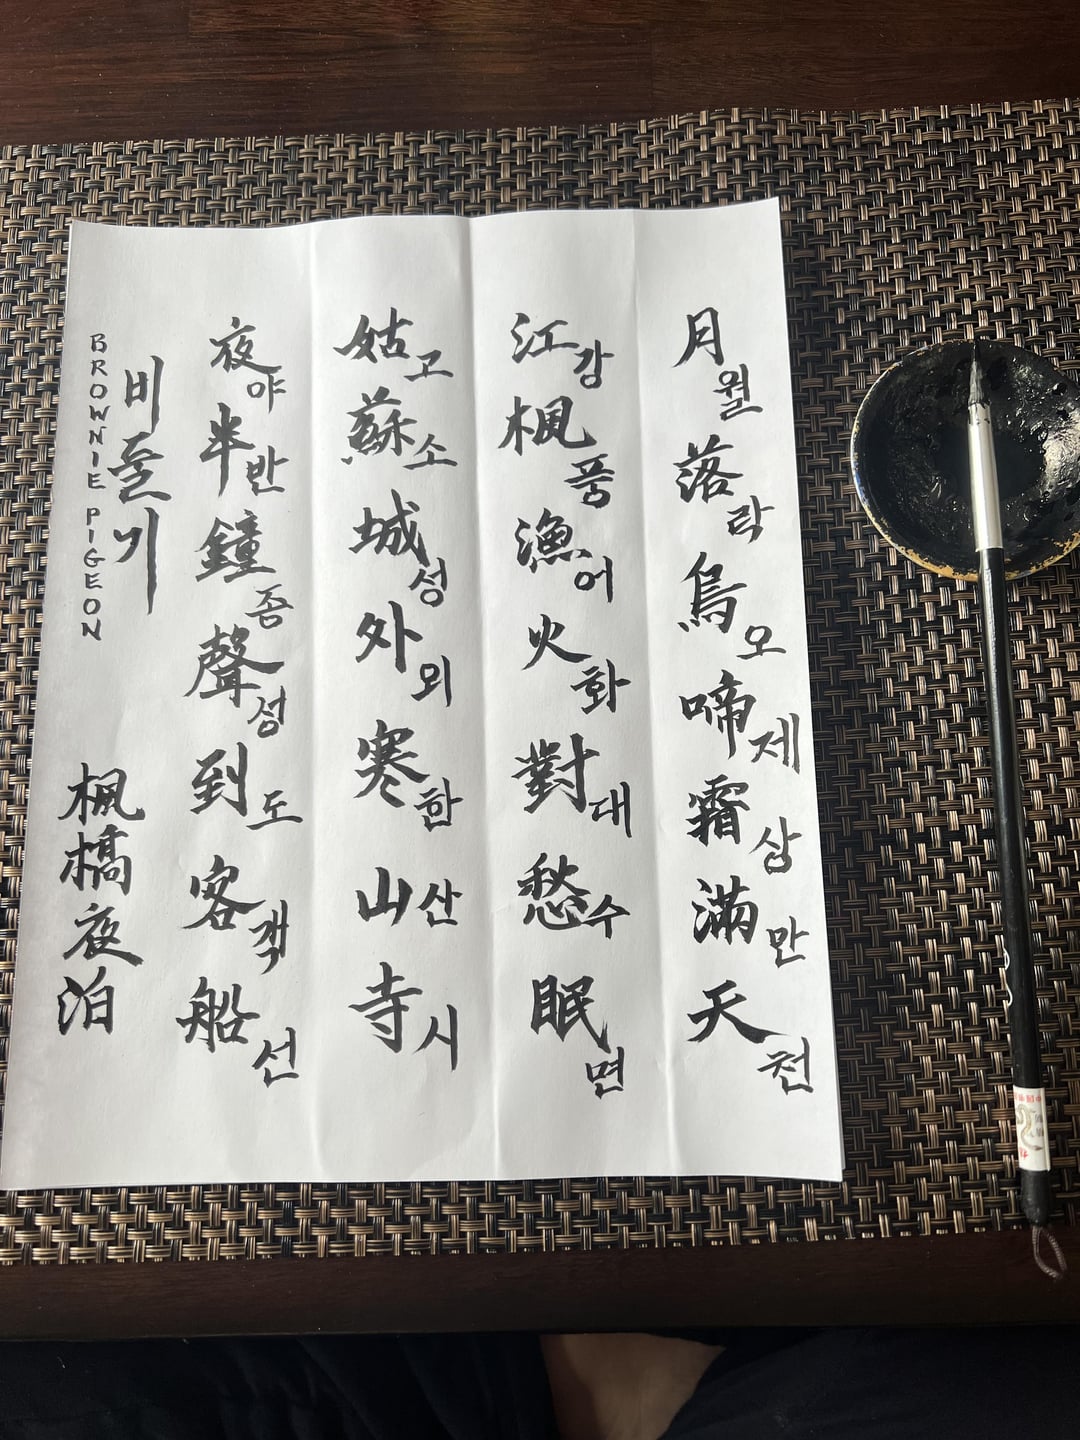 月월落락烏오啼제霜상滿만天천
江강楓풍漁어火화對대愁수眠면
姑고蘇소城성外외寒한山산寺시
夜야半반鐘종聲성到도客객船선
비둘기
BROWNIE PIGEON
楓橋夜泊